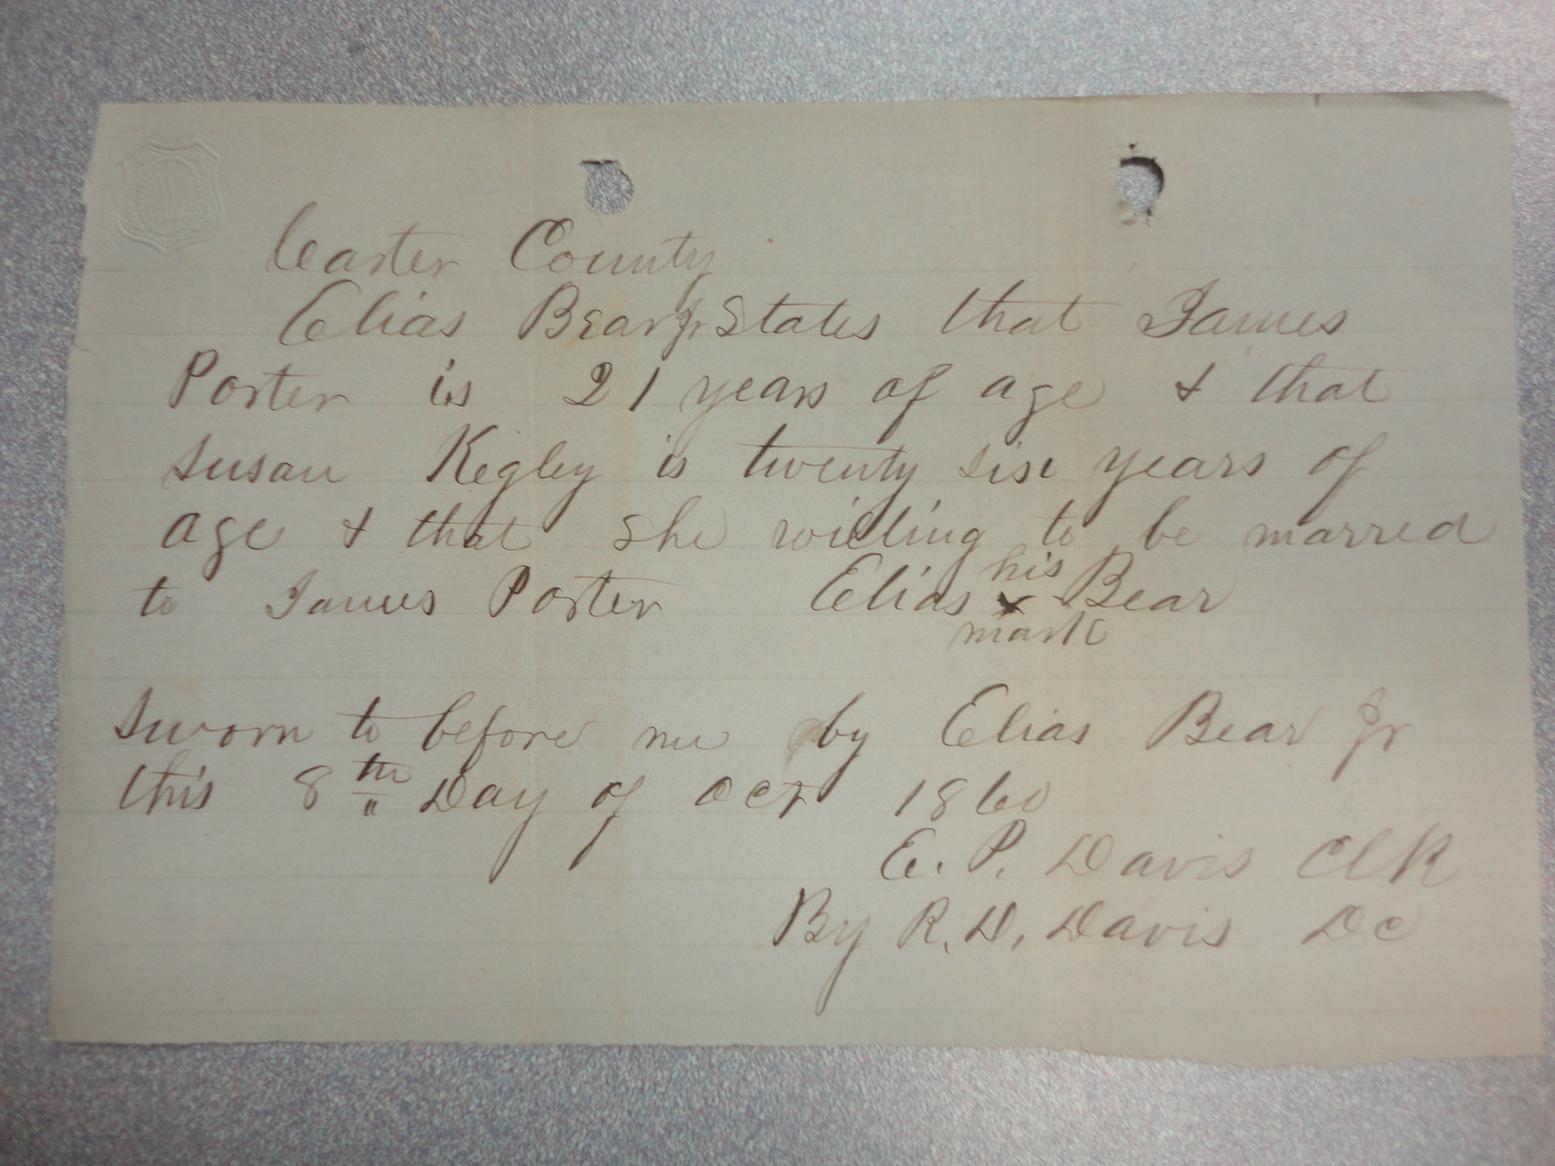 Carter County
Elias Bear Jr States that James
Porter is 21 years of age & that
Susan Kegley is twenty six years of
age & that she willing to be marred
to James Porter Elias his x mark Bear
Sworn to before me by Elias Bear Jr
this 8th Day of Oct 1860
E. P. Davis Clk
By R. D. Davis DC